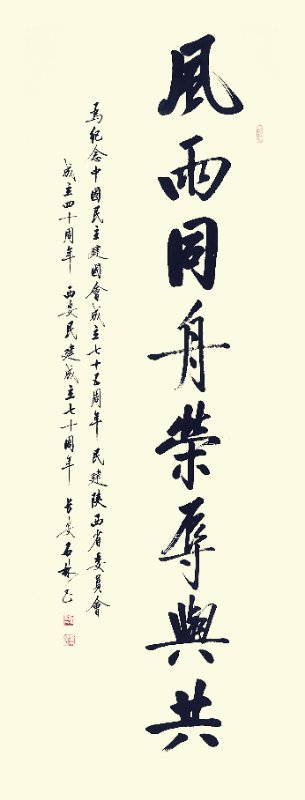 風雨同舟榮辱與共
為紀念中國民主建國會成立七十五周年 民建陝西省委員會
成立四十周年 西安民建成立七十周年 長安石林